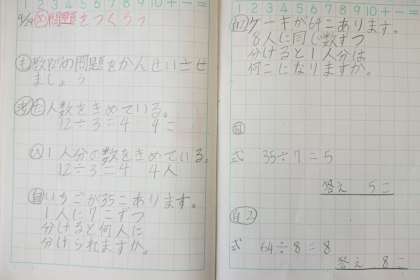 1 2 3 4 5 6 7 8 9 10 + - =
問題をつくろう
数や の問題をかんせいさせ
ましょう
人数をきめている。
12÷3=4 4こ
1人分の数をきめている。
12÷3=4 4人
いちごが35こあります。
1人に7こずつ
分けると何人に
分けられますか。
1 2 3 4 5 6 7 8 9 10 + - =
ケーキが64こあります。
8人に同じ数ずつ
分けると1人分は
何こになりますか。
式 35÷7=5
答え 5こ
自2
式 64÷8=8
答え 8こ